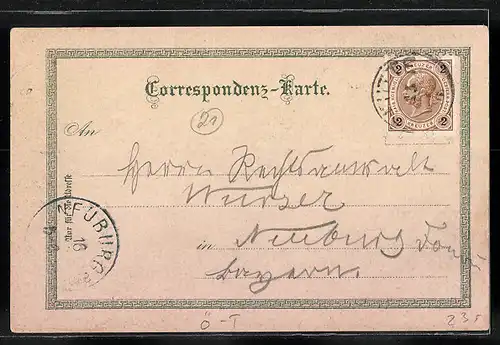 Correspondenz-Karte.
21
An
Herrn Rechtsanwalt
Wurzer
in Neuburg Donau
Bayern.
Nur für die Adresse
NEUBURG
16
2 KREUZER 2
Ö-T
235